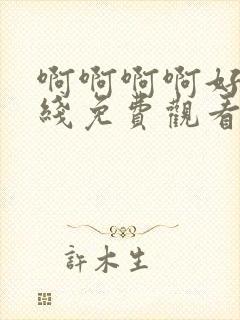 啊啊啊啊好
綫免費觀看
許木生